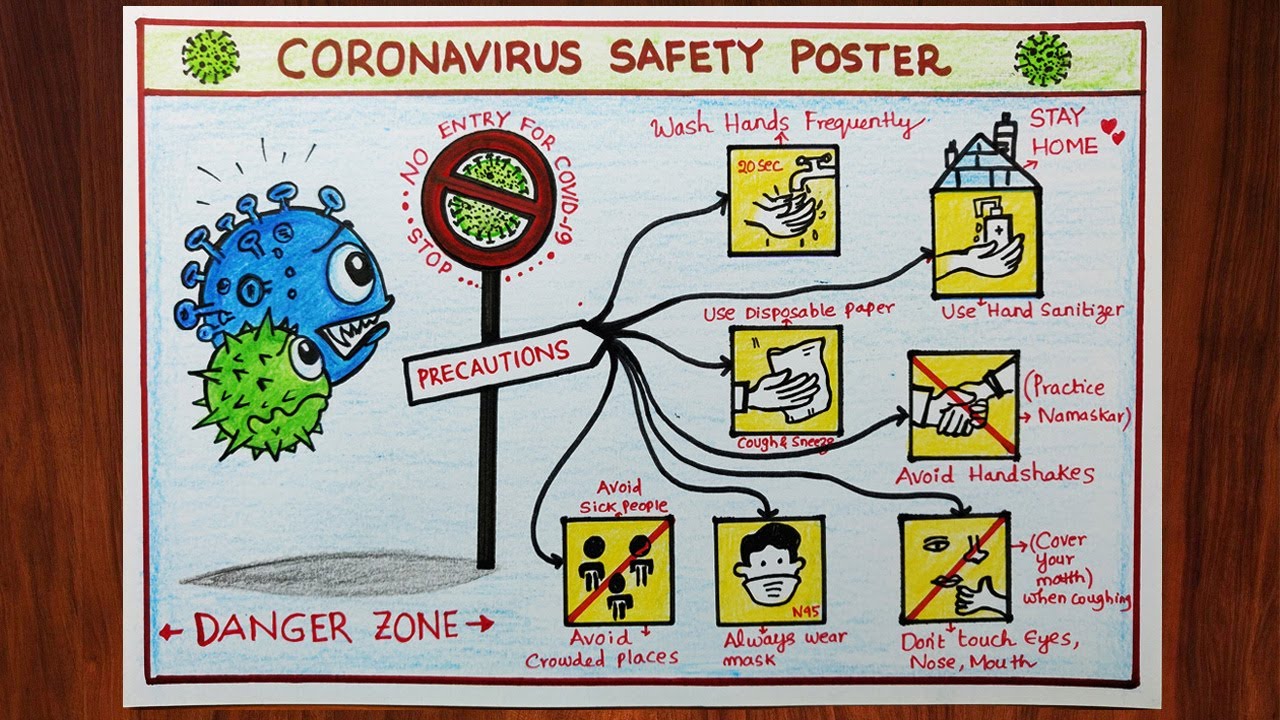 CORONAVIRUS SAFETY POSTER
STOP NO ENTRY FOR COVID-19
PRECAUTIONS
DANGER ZONE
Wash Hands Frequently
20 sec
STAY
HOME
Use Hand Sanitizer
Use Disposable paper
Cough & Sneeze
(Practice
Namaskar)
Avoid Handshakes
Avoid
Sick people
Avoid
Crowded places
N95
Always wear
mask
(Cover
Your
mouth)
when coughing
Don't touch Eyes,
Nose, Mouth